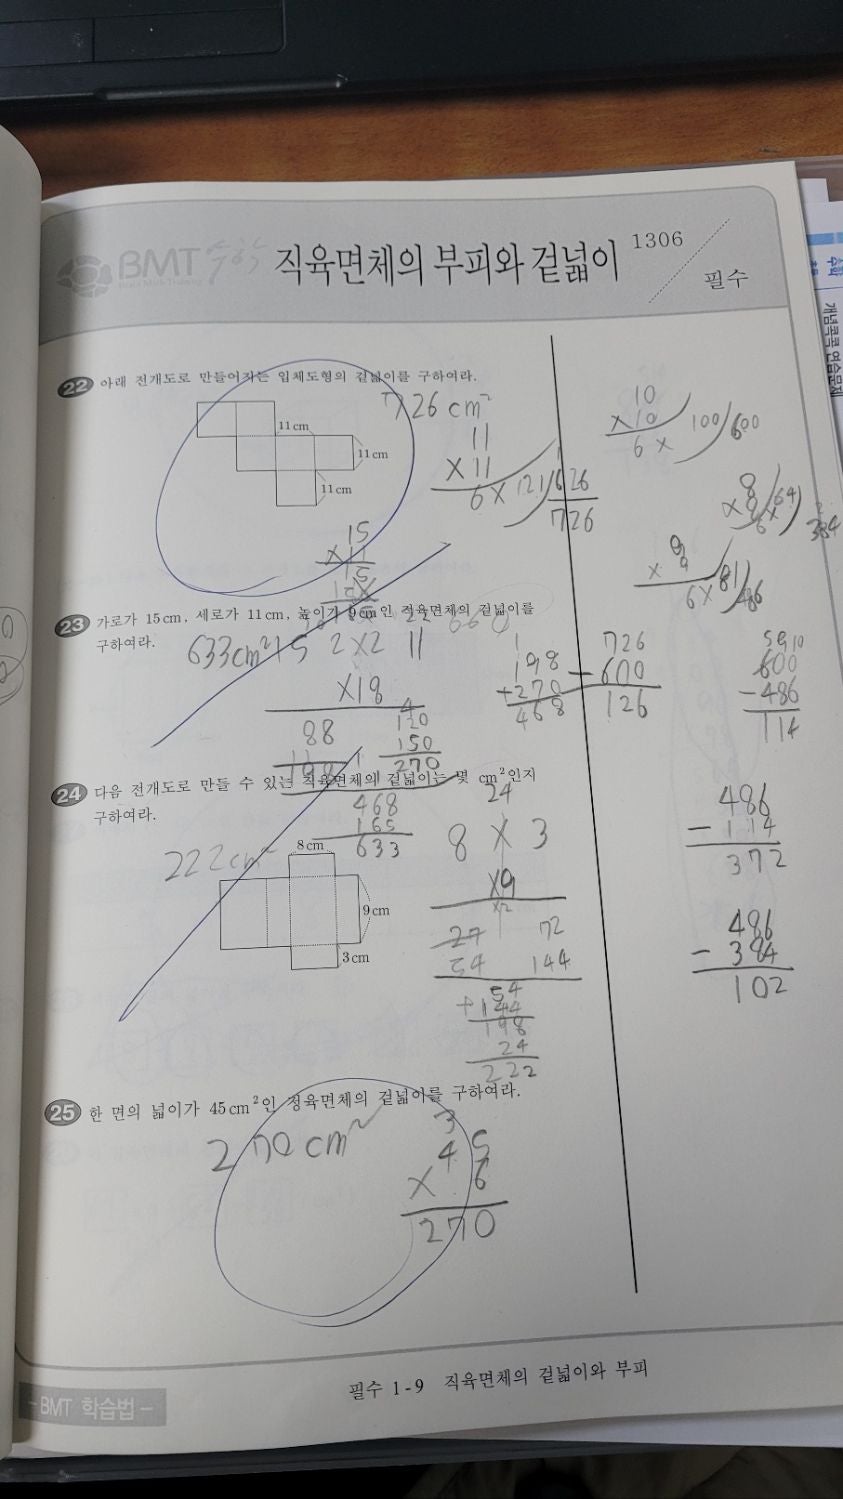 BMT 수학
직육면체의 부피와 겉넓이
1306
필수
22 아래 전개도로 만들어지는 입체도형의 겉넓이를 구하여라.
726 cm²
11cm
11cm
11cm
11
×11
6×121/626
726
15
×11
15
10
×10
6×
100/600
8
×8
6×64
384
9
×9
6×81/486
23 가로가 15cm, 세로가 11cm, 높이가 9cm인 직육면체의 겉넓이를
구하여라.
633cm²
15 2×2 11
×18
88
120
150
270
198
+270
468
726
-600
126
600
-486
114
468
165
633
24 다음 전개도로 만들 수 있는 직육면체의 겉넓이는 몇 cm²인지
구하여라.
222cm²
8cm
9cm
3cm
24
8×3
×9
×2
27 72
54 144
54
+144
198
24
222
486
-114
372
486
-384
102
25 한 면의 넓이가 45cm²인 정육면체의 겉넓이를 구하여라.
270cm²
3
45
×6
270
필수 1-9 직육면체의 겉넓이와 부피
-BMT 학습법-
개념콕콕 연습문제